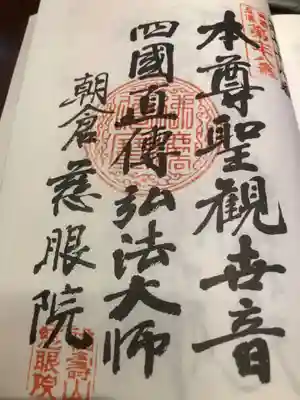 本尊聖觀世音
四國直傳弘法大師
朝倉慈眼院